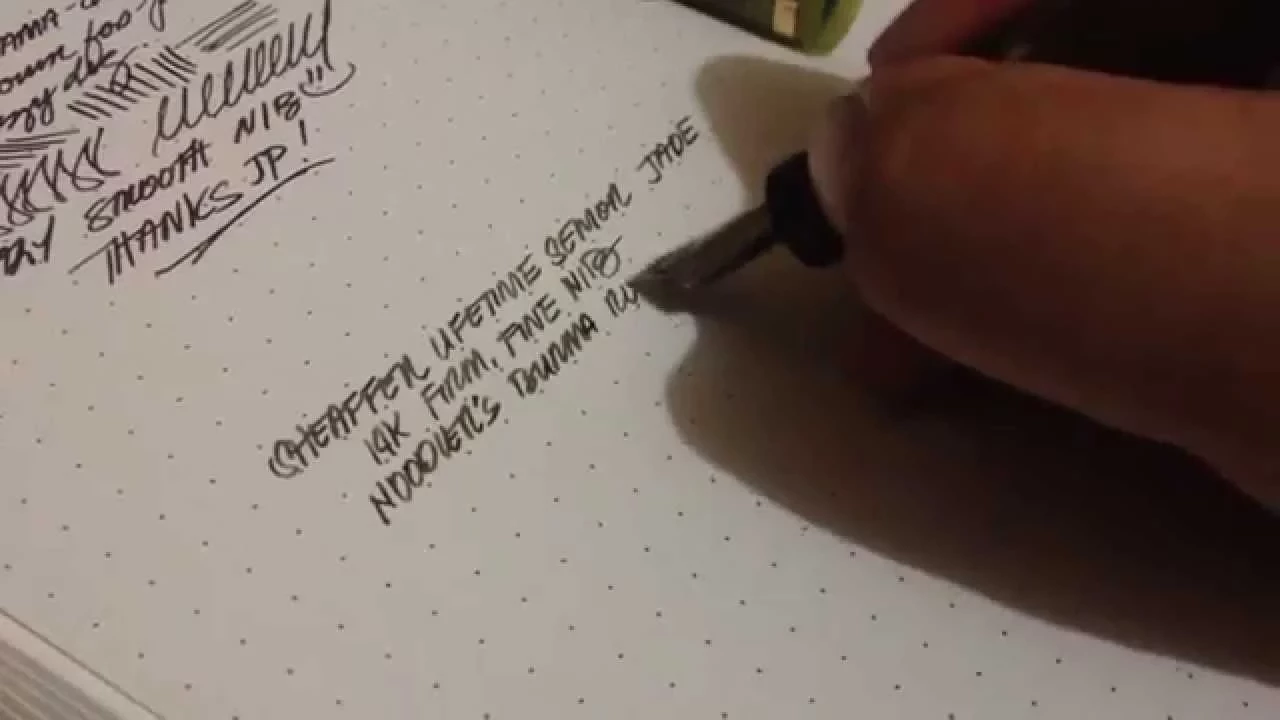 AMA-
own foo
zzy do
SMOOTH NIB
THANKS JP!
SHEAFFER LIFETIME SENIOR JADE
14K FIRM, FINE NIB
NOODLER'S BURMA RU